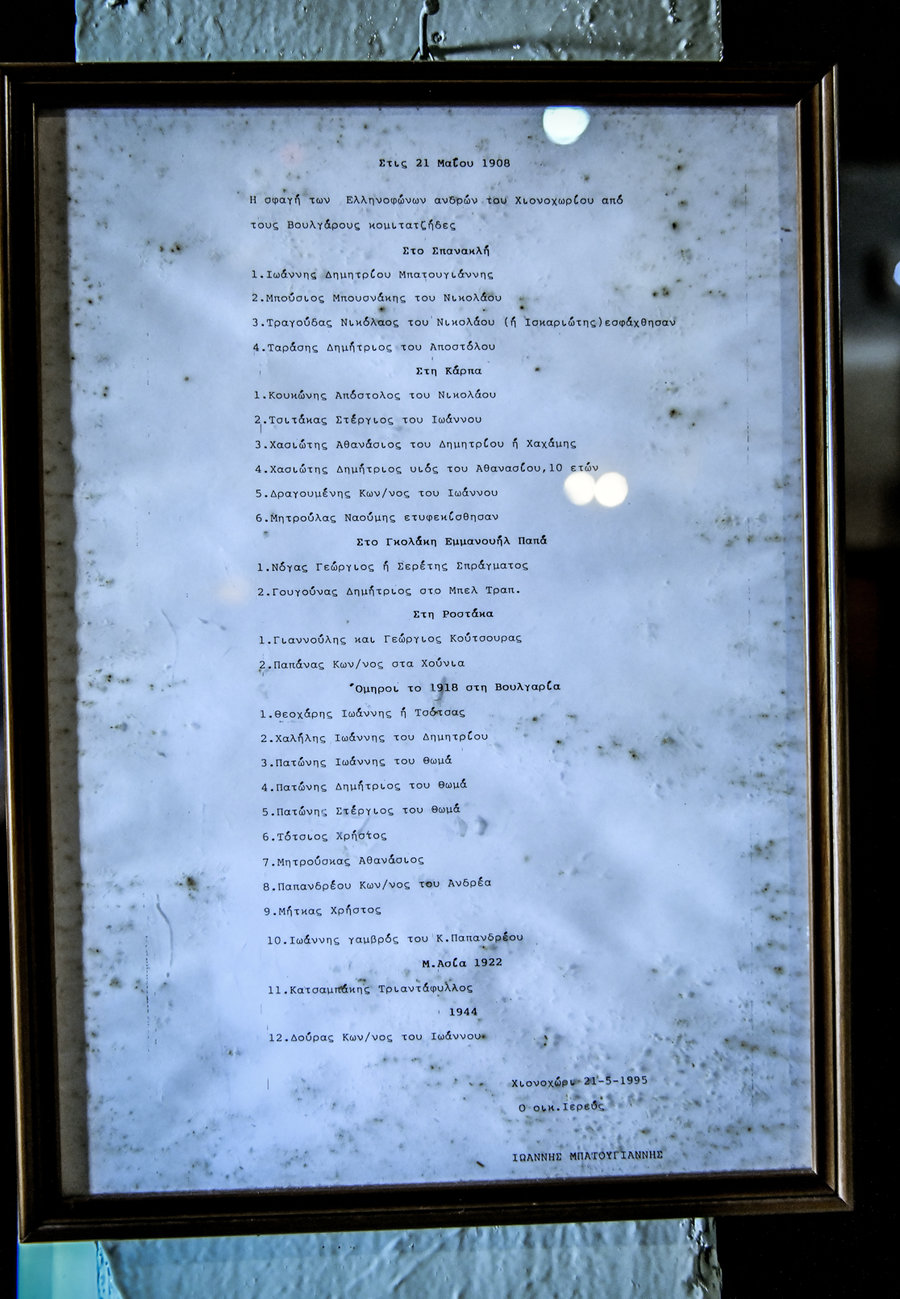 Στις 21 Μαΐου 1908
Η σφαγή των Ελληνοφώνων ανδρών του Χιονοχωρίου από
τους Βουλγάρους κομιτατζήδες
Στο Σπανακλή
1.Ιωάννης Δημητρίου Μπατουγιάννης
2.Μπούσιος Μπουσνάκης του Νικολάου
3.Τραγούδας Νικόλαος του Νικολάου (ή Ισκαριώτης)εσφάχθησαν
4.Ταράσης Δημήτριος του Αποστόλου
Στη Κάρπα
1.Κουκώνης Απόστολος του Νικολάου
2.Τσιτάκας Στέργιος του Ιωάννου
3.Χασιώτης Αθανάσιος του Δημητρίου ή Χαχάμης
4.Χασιώτης Δημήτριος υιός του Αθανασίου,10 ετών
5.Δραγουμένης Κων/νος του Ιωάννου
6.Μητρούλας Ναούμης ετυφεκίσθησαν
Στο Γκολάκη Εμμανουήλ Παπά
1.Νόγας Γεώργιος ή Σερέτης Σπράγματος
2.Γουγούνας Δημήτριος στο Μπελ Τραπ.
Στη Ροστάκα
1.Γιαννούλης και Γεώργιος Κούτσουρας
2.Παπάνας Κων/νος στα Χούνια
Όμηροι το 1918 στη Βουλγαρία
1.Θεοχάρης Ιωάννης ή Τσότσας
2.Χαλήλης Ιωάννης του Δημητρίου
3.Πατώνης Ιωάννης του Θωμά
4.Πατώνης Δημήτριος του Θωμά
5.Πατώνης Στέργιος του Θωμά
6.Τότσιος Χρήστος
7.Μητρούσκας Αθανάσιος
8.Παπανδρέου Κων/νος του Ανδρέα
9.Μήτκας Χρήστος
10.Ιωάννης γαμβρός του Κ.Παπανδρέου
Μ.Ασία 1922
11.Κατσαμπάκης Τριαντάφυλλος
1944
12.Δούρας Κων/νος του Ιωάννου
Χιονοχώρι 21-5-1995
Ο οικ.Ιερεύς
ΙΩΑΝΝΗΣ ΜΠΑΤΟΥΓΙΑΝΝΗΣ